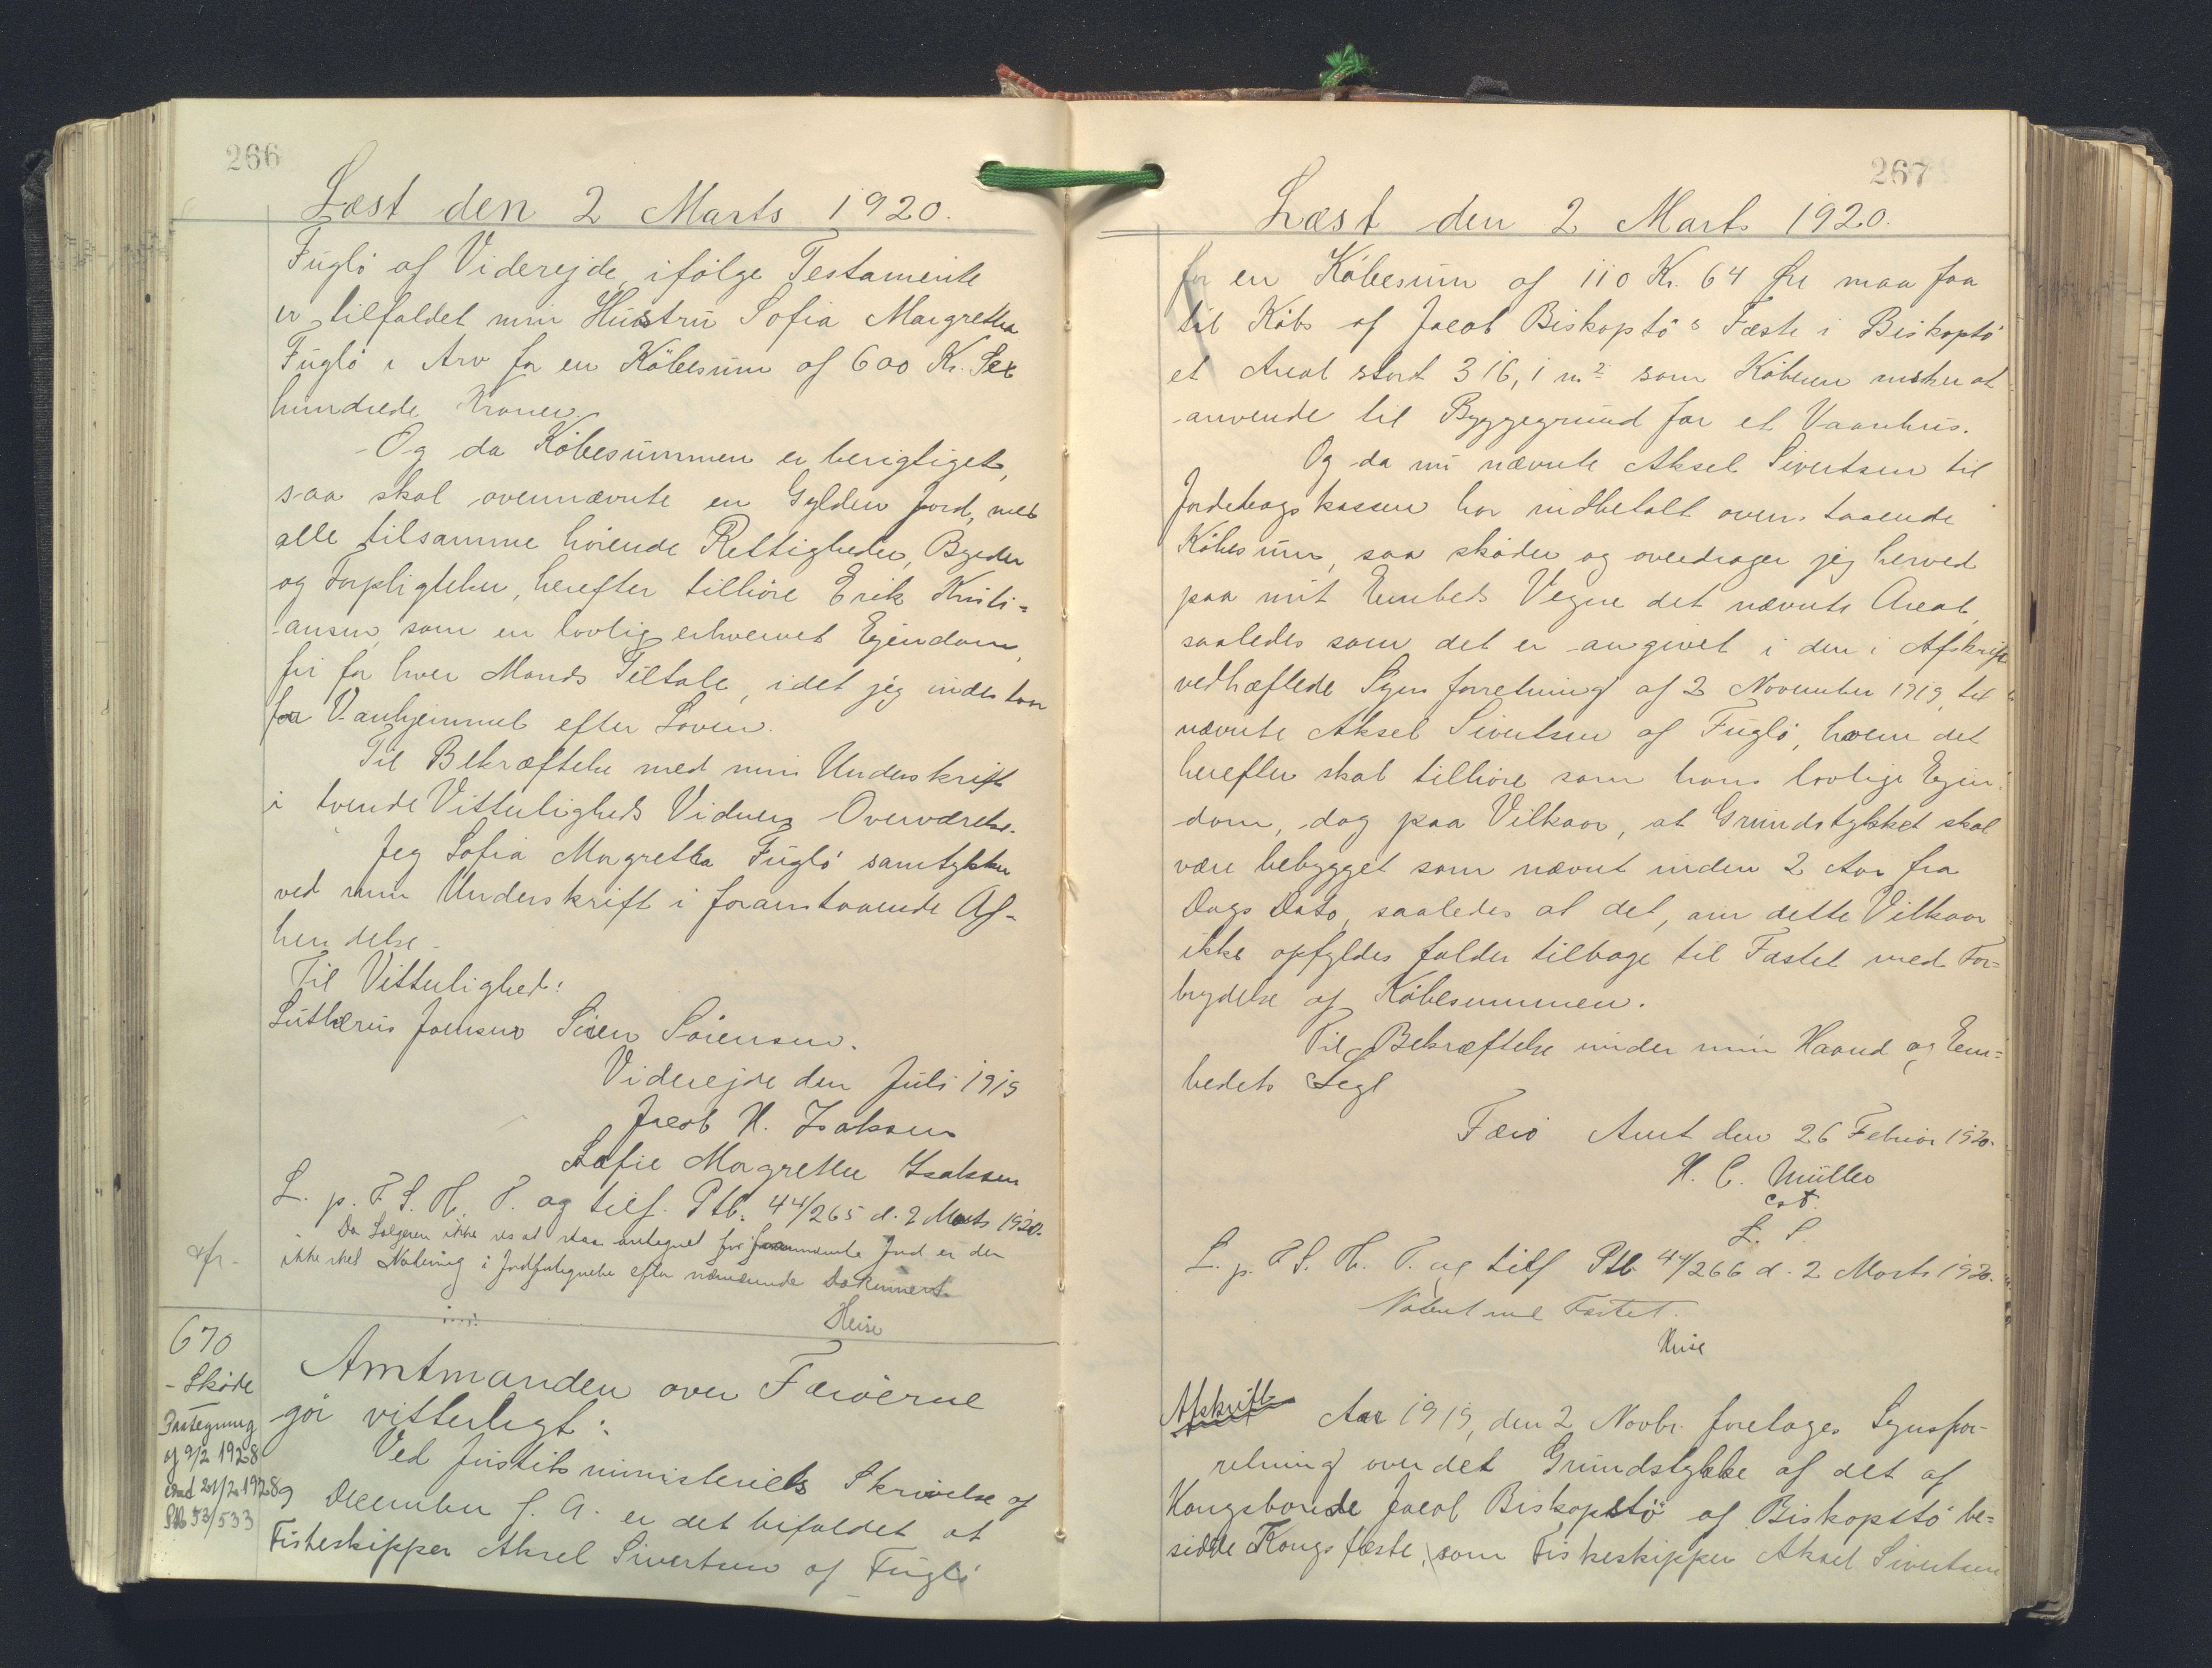 266
Læst den 2 Marts 1920.
Fuglö af Viderejde, ifölge Testamente
er tilfaldet min Hustru Sofia Margretha
Fuglö i Arv for en Köbesum af 600 Kr. Sex
hundrede Kroner.
Og da Köbesummen er berigtiget,
saa skal ovennævnte en Gylden Jord, med
alle tilsamme hörende Rettigheder, Byrder
og Forpligtelser, herefter tilhöre Erik Kristi=
ansen, som en lovlig erhvervet Ejendom,
fri for hver Mands Tiltale, idet jeg indestaar
for Vanhjemmel efter Loven.
Til Bekræftelse med min Underskrift
i tvende Vitterligheds Vidners Overværelse.
Jeg Sofia Margretha Fuglö samtykker
ved min Underskrift i foranstaaende Af=
hendelse.
Til Vitterlighed:
Lutherus Joensen Sören Sörensen.
Viderejde den Juli 1919
Jacob H. Isaksen
Sofie Margrethe Isaksen
L. p. F. S. H. T. og tilf. Ptb. 44/265 d. 2 Marts 1920.
Da Sælgeren ikke ses at staa antegnet for foannævnte Jord er der
ikke sket Notering i Jordfortegnelse efter nærværende Dokument.
Heise
afr.
670
Skøde
Paategning
af 9/2 1928
21/2 1928
Ptb 53/533
Amtmanden over Færöerne
gör vitterligt:
Ved Justitsministeriets Skrivelse af
9 December f. A. er det bifaldet at
Fiskeskipper Aksel Sivertsen af Fuglö
267
Læst den 2 Marts 1920.
for en Köbesum af 110 Kr. 64 Øre maa faa
til Köbs af Jacob Biskopstö's Fæste i Biskopstö
et Areal stort 316,1 m² som Köberen ønsker at
anvende til Byggegrund for et Vaanhus.
Og da nu nævnte Aksel Sivertsen til
Jordebogskassen har indbetalt ovenstaaende
Köbesum, saa sköder og overdrager jeg herved
paa mit Embeds Vegne det nævnte Areal,
saaledes som det er angivet i den i Afskrift
vedhæftede Synsforretning af 2 November 1919, til
nævnte Aksel Sivertsen af Fuglö, hvem det
herefter skal tilhöre som hans lovlige Ejen
dom, dog paa Vilkaar, at Grundstykket skal
være bebygget som nævnt inden 2 Aar fra
Dags Dato, saaledes at det, om dette Vilkaar
ikke opfyldes falder tilbage til Fæstet med For=
brydelse af Köbesummen.
Til Bekræftelse under min Haand og Em=
bedets Segl
Færö Amt den 26 Februar 1920.
H. C. Müller
cst.
L. S.
L. p. F. S. H. T. og tilf Ptb 44/266 d. 2 Marts 1920.
Noteret ved Fæstet.
Heise
Afskrift
Aar 1919, den 2 Novbr. foretages Synsfor-
retning over det Grundstykke af det af
Kongsbonde Jacob Biskopstö af Biskopstö be=
sidde Kongsfæste, som Fiskeskipper Aksel Sivertsen